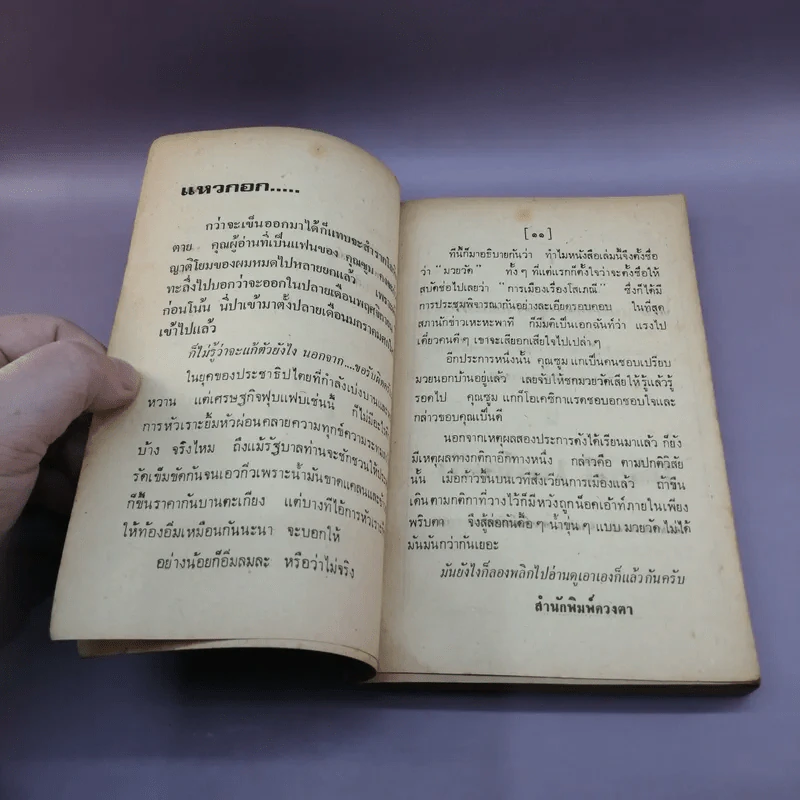 แหวกอก.....
กว่าจะเข็นออกมาได้ก็แทบจะสำราก
ตาย คุณผู้อ่านที่เป็นแฟนของ คุณซูม
ญาติโยมของผมหมดไปหลายยกแล้ว
ทะลึ่งไปบอกว่าจะออกในปลายเดือน
ก่อนโน้น นี่ปาเข้ามาตั้งปลายเดือนมกราคม
เข้าไปแล้ว
ก็ไม่รู้ว่าจะแก้ตัวยังไง นอกจาก....
ในยุคของประชาธิปไตยที่กำลังเบ่งบาน
หวาน แต่เศรษฐกิจฟุบแฟบเช่นนี้ ก็ไม่มีอะไร
การหัวเราะยิ้มหัวผ่อนคลายความทุกข์ความระทม
บ้าง จริงไหม ถึงแม้รัฐบาลท่านจะชักชวนให้
รัดเข็มขัดกันจนเอวกิ่วเพราะน้ำมันขาดแคลนและ
ก็ขึ้นราคากันบานตะเกียง แต่บางทีไอ้การหัวเราะ
ให้ท้องอิ่มเหมือนกันนะนา จะบอกให้
อย่างน้อยก็อิ่มลมละ หรือว่าไม่จริง
[๑๑]
ทีนี้ก็มาอธิบายกันว่า ทำไมหนังสือเล่มนี้จึงตั้งชื่อ
ว่า "มวยวัด" ทั้ง ๆ ที่แต่แรกก็ตั้งใจว่าจะตั้งชื่อให้
สบัดช่อไปเลยว่า "การเมืองเรื่องโสเภณี" ซึ่งก็ได้มี
การประชุมพิจารณากันอย่างละเอียดรอบคอบ ในที่สุด
สภานักข่าวเหะหะพาที ก็มีมติเป็นเอกฉันท์ว่า แรงไป
เดี๋ยวคนดี ๆ เขาจะเสียอกเสียใจไปเปล่า ๆ
อีกประการหนึ่งนั้น คุณซูม แกเป็นคนชอบเปรียบ
มวยนอกบ้านอยู่แล้ว เลยจับให้ชกมวยวัดเสียให้รู้แล้วรู้
รอดไป คุณซูม แกก็โอเคซิกาแรตชอบอกชอบใจและ
กล่าวขอบคุณเป็นดี
นอกจากเหตุผลสองประการดังได้เรียนมาแล้ว ก็ยัง
มีเหตุผลทางกติกาอีกทางหนึ่ง กล่าวคือ ตามปกติวิสัย
นั้น เมื่อก้าวขึ้นบนเวทีสังเวียนการเมืองแล้ว ถ้าขืน
เดินตามกติกาที่วางไว้ก็มีหวังถูกน็อคเอ้าท์ภายในเพียง
พริบตา จึงสู้ล่อกันดื้อ ๆ น้ำขุ่น ๆ แบบ มวยวัด ไม่ได้
มันมันกว่ากันเยอะ
มันยังไงก็ลองพลิกไปอ่านดูเอาเองก็แล้วกันครับ
สำนักพิมพ์ดวงตา